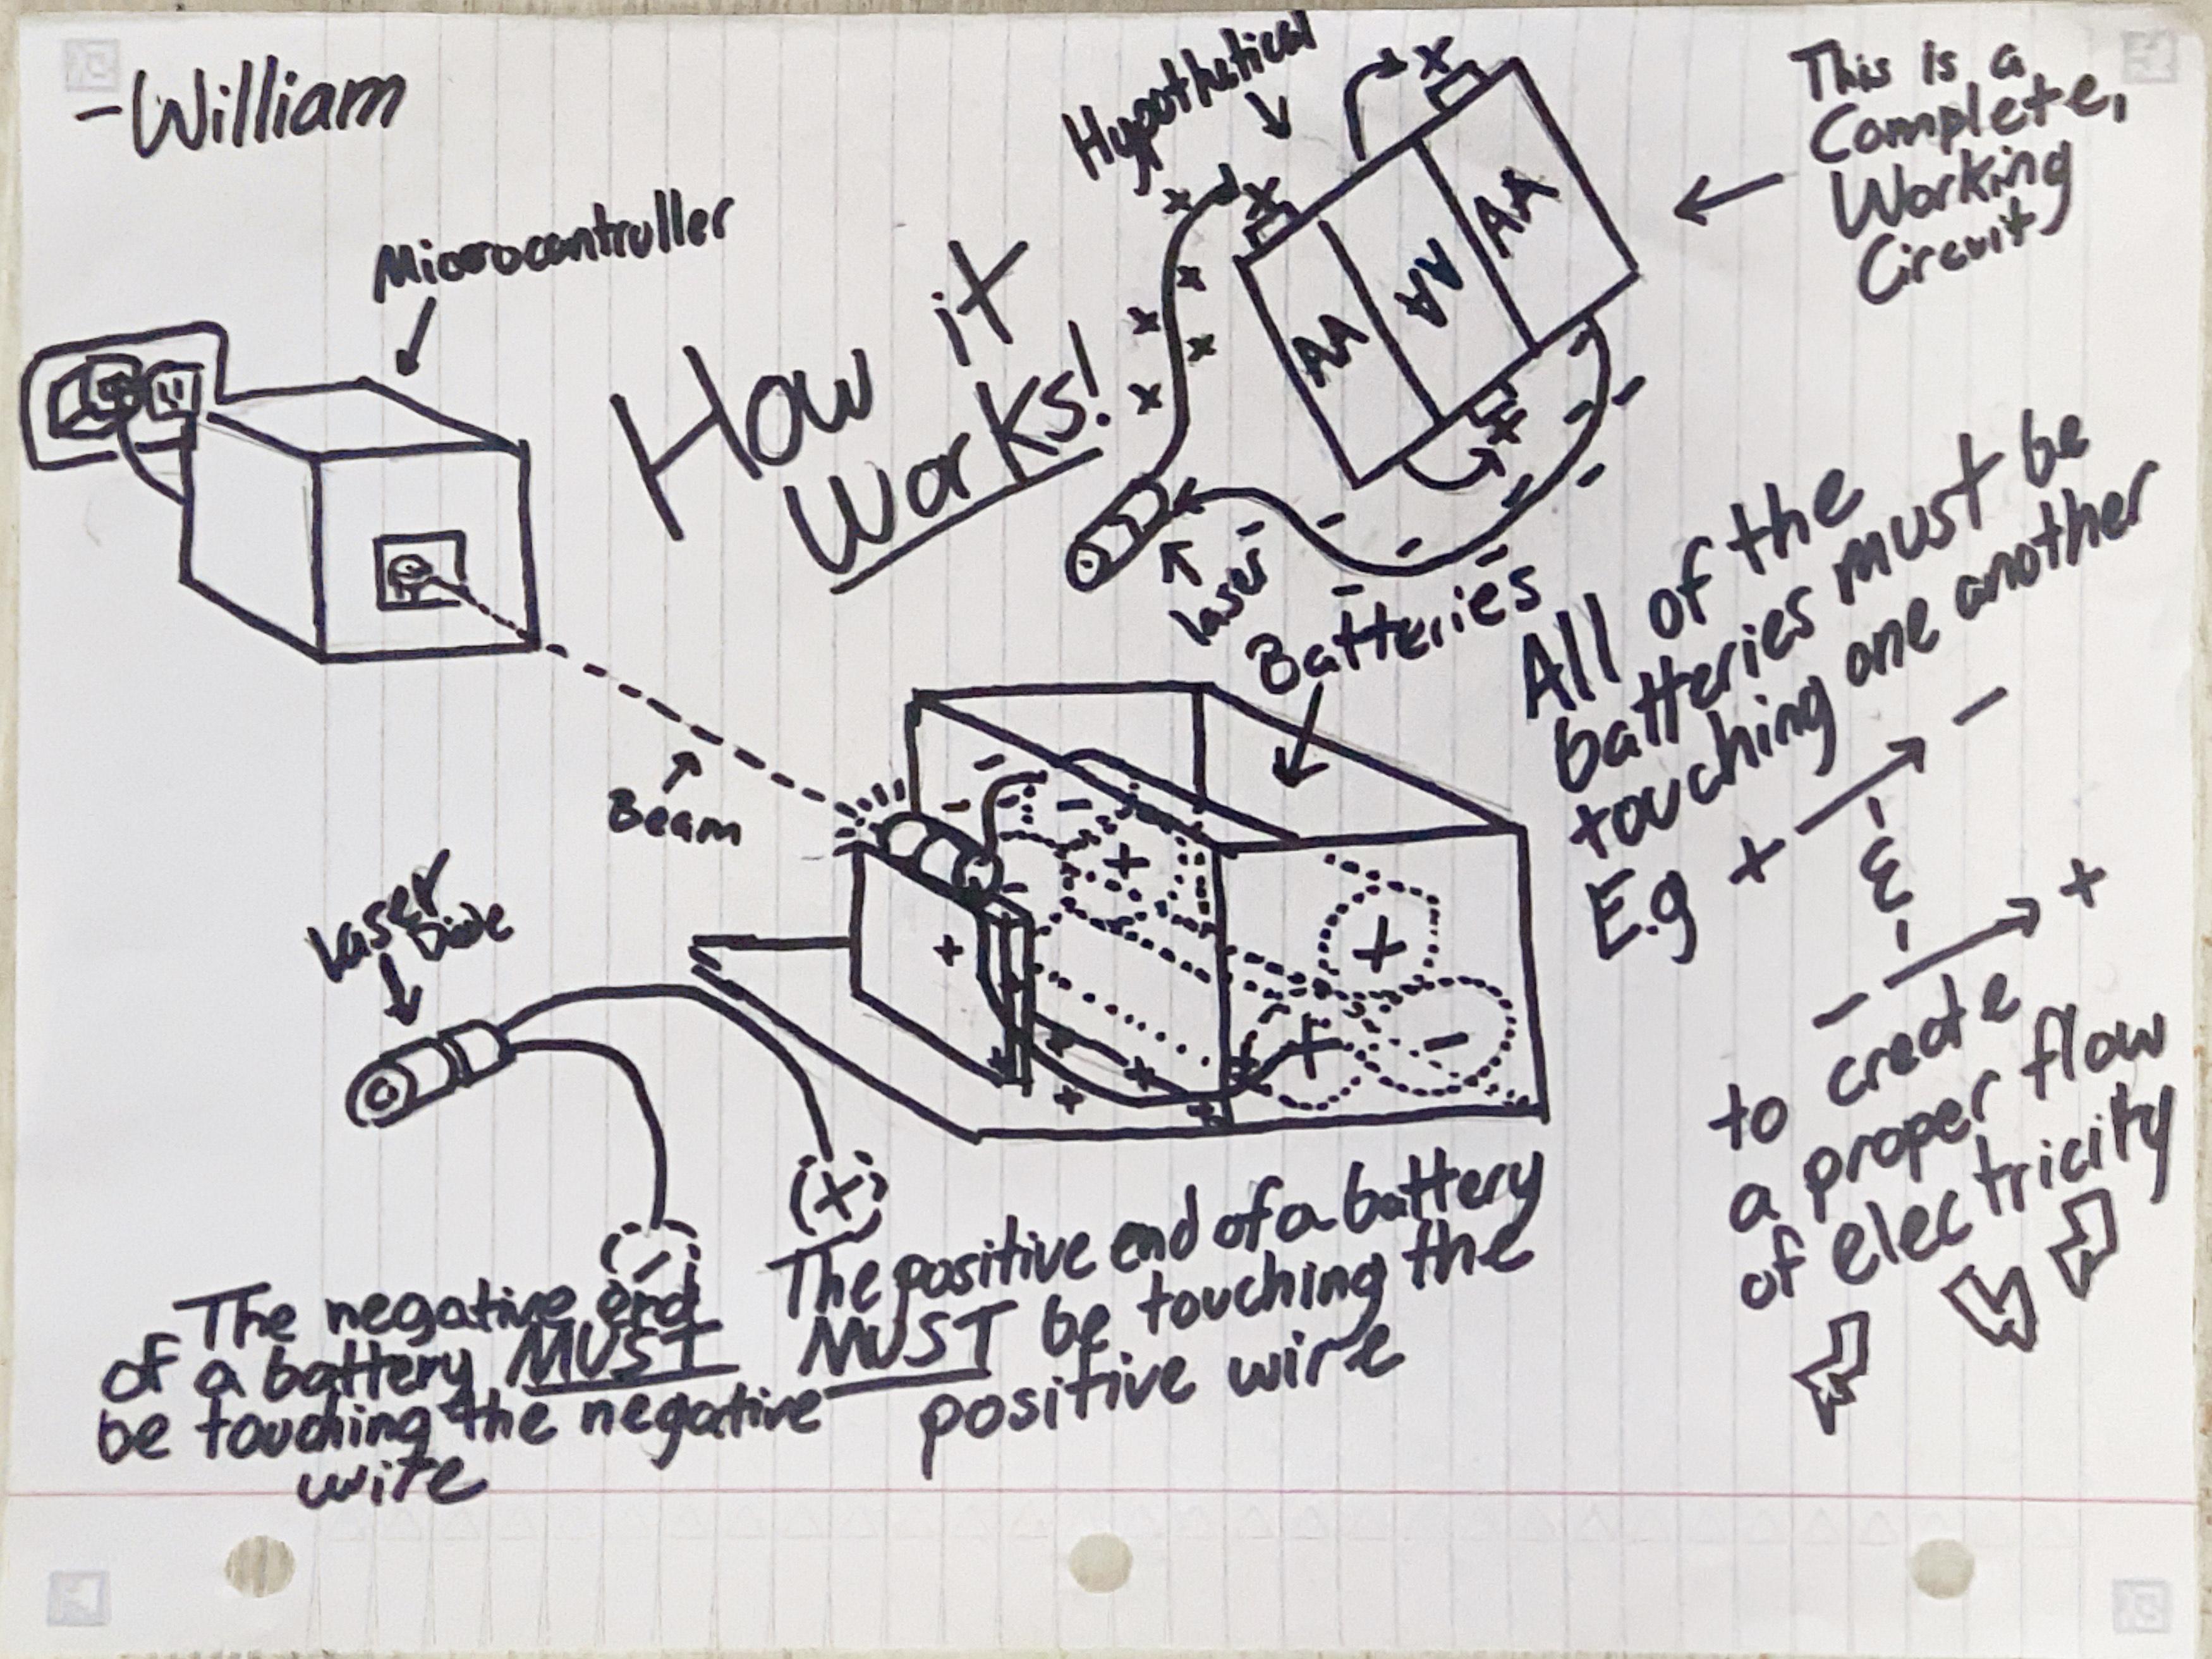 -William
Microcontroller
How it
Works!
Hypothetical
+
+
AA
AA
AA
+
This is a
Complete,
Working
Circuit
Laser
Batteries
Beam
Laser
Diode
All of the
batteries must be
touching one another
E.g + → -
&
- → +
to create
a proper flow
of electricity
(+)
(-)
The negative end
of a battery MUST
be touching the negative
wire
The positive end of a battery
MUST be touching the
positive wire